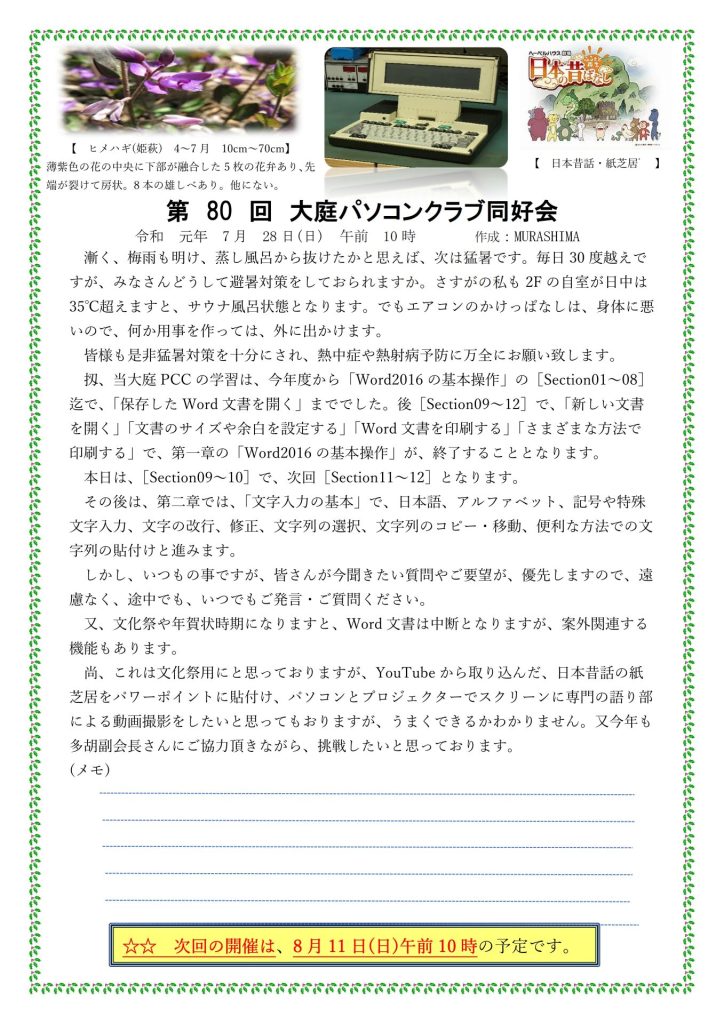 ヘーベルハウス劇場
日本昔ばなし
【　ヒメハギ(姫萩)　4～7月　10cm～70cm】
薄紫色の花の中央に下部が融合した5枚の花弁あり、先
端が裂けて房状。8本の雄しべあり。他にない。
【　日本昔話・紙芝居゛　】
第　80　回　大庭パソコンクラブ同好会
令和　元年　7月　28日(日)　午前　10時　　　　作成：MURASHIMA
漸く、梅雨も明け、蒸し風呂から抜けたかと思えば、次は猛暑です。毎日30度越えで
すが、みなさんどうして避暑対策をしておられますか。さすがの私も2Fの自室が日中は
35℃超えますと、サウナ風呂状態となります。でもエアコンのかけっぱなしは、身体に悪
いので、何か用事を作っては、外に出かけます。
皆様も是非猛暑対策を十分にされ、熱中症や熱射病予防に万全にお願い致します。
扨、当大庭PCCの学習は、今年度から「Word2016の基本操作」の［Section01～08］
迄で、「保存したWord文書を開く」まででした。後［Section09～12］で、「新しい文書
を開く」「文書のサイズや余白を設定する」「Word文書を印刷する」「さまざまな方法で
印刷する」で、第一章の「Word2016の基本操作」が、終了することとなります。
本日は、［Section09～10］で、次回［Section11～12］となります。
その後は、第二章では、「文字入力の基本」で、日本語、アルファベット、記号や特殊
文字入力、文字の改行、修正、文字列の選択、文字列のコピー・移動、便利な方法での文
字列の貼付けと進みます。
しかし、いつもの事ですが、皆さんが今聞きたい質問やご要望が、優先しますので、遠
慮なく、途中でも、いつでもご発言・ご質問ください。
又、文化祭や年賀状時期になりますと、Word文書は中断となりますが、案外関連する
機能もあります。
尚、これは文化祭用にと思っておりますが、YouTubeから取り込んだ、日本昔話の紙
芝居をパワーポイントに貼付け、パソコンとプロジェクターでスクリーンに専門の語り部
による動画撮影をしたいと思ってもおりますが、うまくできるかわかりません。又今年も
多胡副会長さんにご協力頂きながら、挑戦したいと思っております。
(メモ)
☆☆　次回の開催は、8月11日(日)午前10時の予定です。